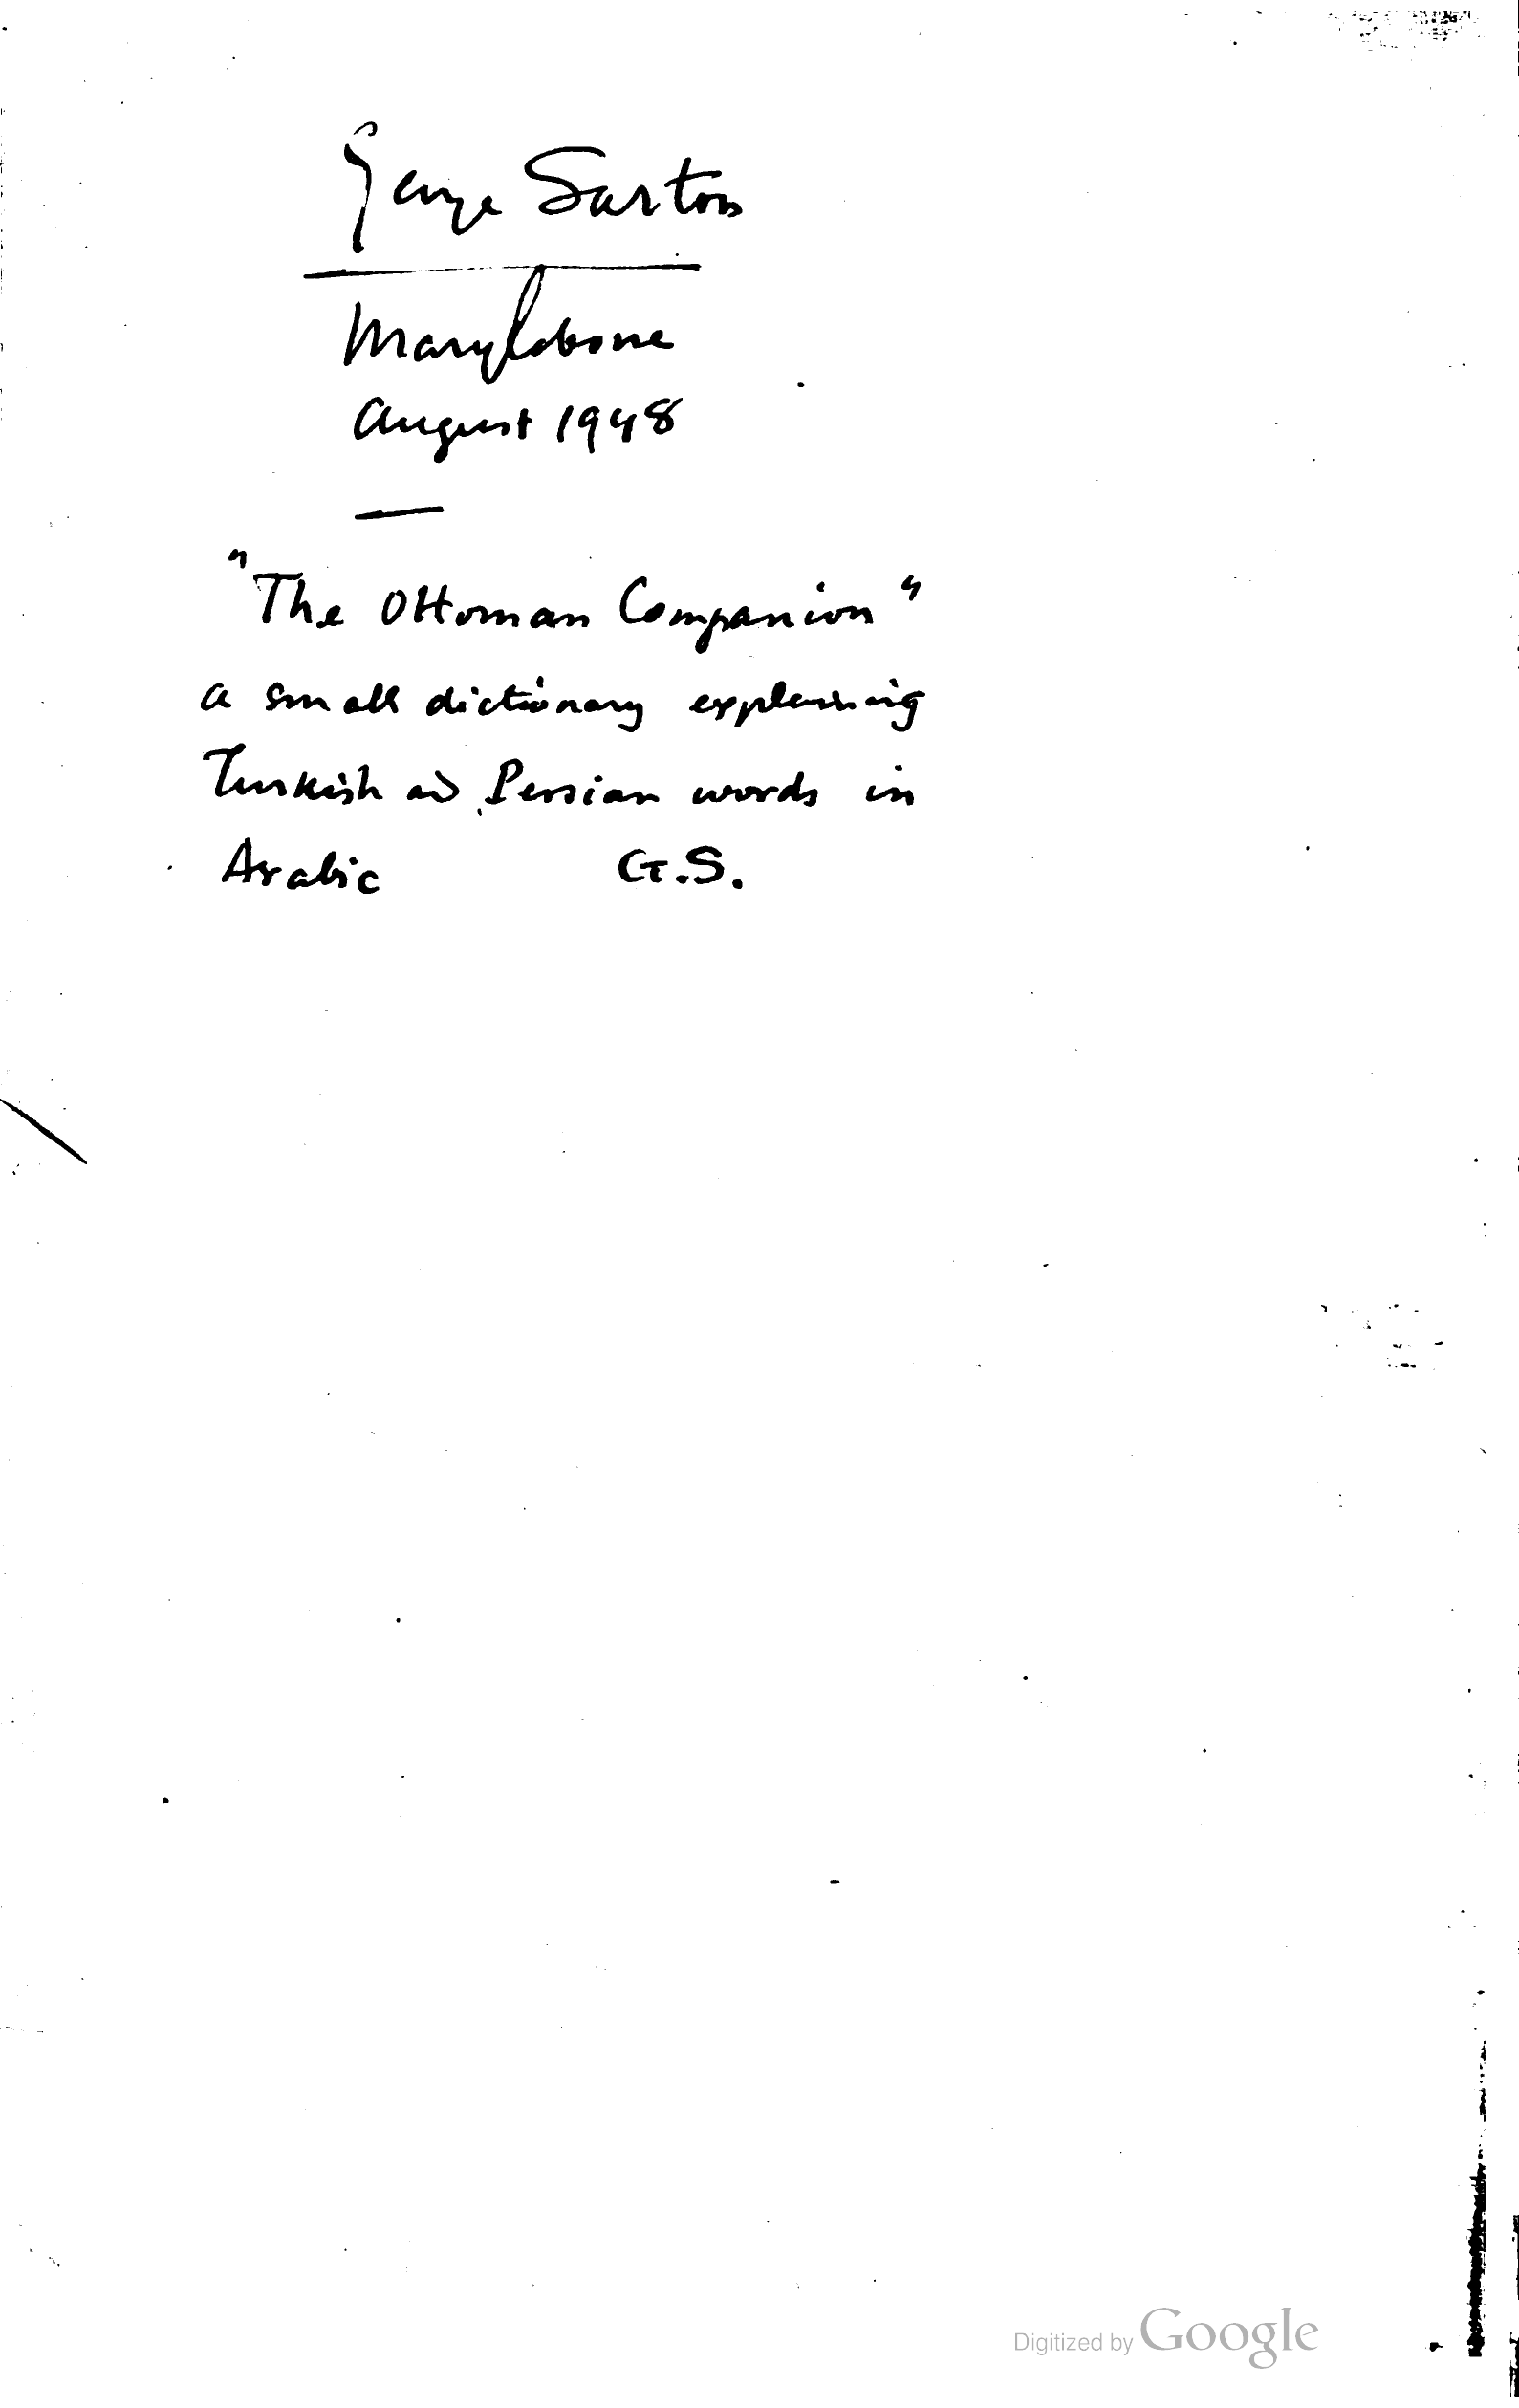 George Sarton
Marylebone
August 1948
"The Ottoman Companion"
a small dictionary explaining
Turkish and Persian words in
Arabic G.S.
Digitized by Google